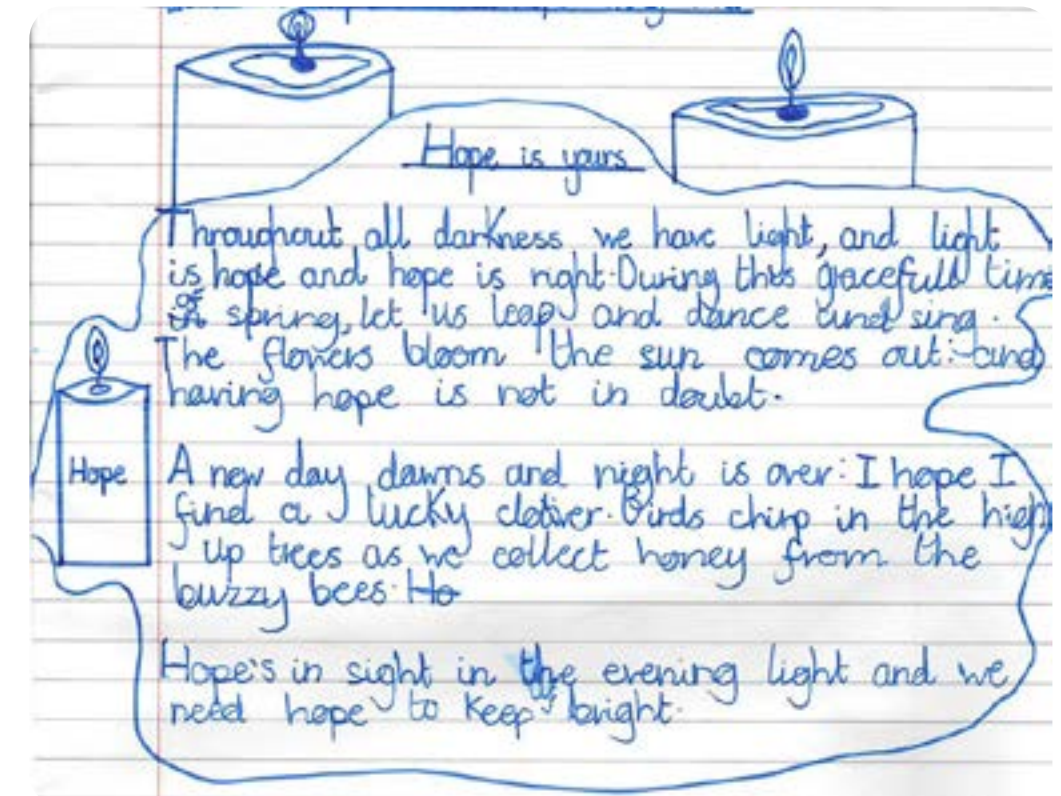 Hope is yours
Throughout all darkness we have light, and light
is hope and hope is right. During this gracefull time
of spring, let us leap and dance and sing.
The flowers bloom the sun comes out: and
having hope is not in doubt.
Hope
A new day dawns and night is over: I hope I
find a lucky clover. Birds chirp in the high
up trees as we collect honey from the
buzzy bees. Ho
Hope's in sight in the evening light and we
need hope to keep bright.